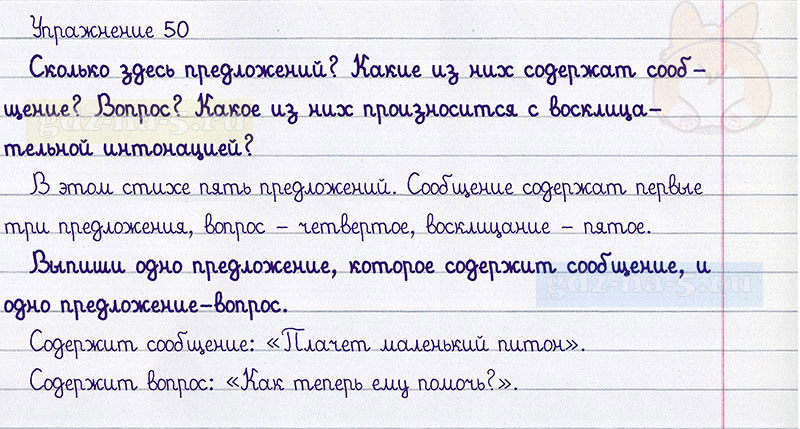 Упражнение 50
Сколько здесь предложений? Какие из них содержат сооб-
щение? Вопрос? Какое из них произносится с восклица-
тельной интонацией?
В этом стихе пять предложений. Сообщение содержат первые
три предложения, вопрос – четвертое, восклицание – пятое.
Выпиши одно предложение, которое содержит сообщение, и
одно предложение-вопрос.
gdz-na-5.ru
Содержит сообщение: «Плачет маленький питон».
Содержит вопрос: «Как теперь ему помочь?».